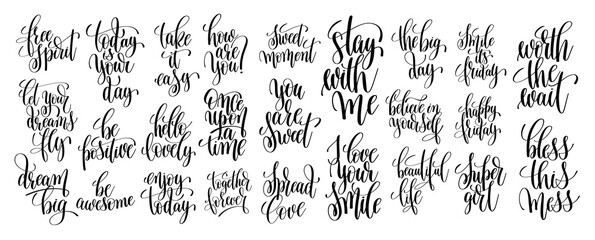 free
spirit
let your
dreams
fly
dream
big
today
is
your
day
be
positive
be
awesome
take
it
easy
hello
lovely
enjoy
today
how
are
you?
Once
upon
a
time
together
forever
Sweet
moment
you
are
Sweet
Spread
love
Stay
with
me
I love
your
Smile
the big
day
believe in
yourself
beautiful
life
Smile
it's
friday
happy
friday
Super
girl
worth
the
wait
bless
this
mess